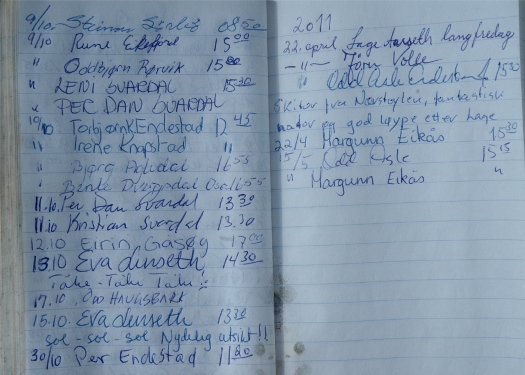 9/10. Steinar 08 50
9/10 Rune 15 00
" Oddbjørn Rørvik 15 00
" LENI SVARDAL 15 30
" PER DAN SVARDAL
10/10 Torbjørn K. Endestad 12 45
" Irene Knapstad "
" Bjørg 16 55
" Bente 16 55
11.10. Per Dan Svardal 13 30
11.10 Kristian Svardal 13.30
12.10 Eirin Gasøy 17 00
13.10 Eva durseth 14 30
Tåke - Tåke Tåke!
17.10. ODD HAUGSBAKK
15.10. Eva durseth 13 30
sol - sol - sol Nydelig utsikt!!
30/10 Per Endestad 11 20
2011
22. april langfredag
- " - Volle
" Odd Asle Endestad 15 30
Skitur fra Nørstøylen, fantastisk
natur og god løype etter
22/4 Margunn Eikås 15 30
15/5 Odd Asle 15 15
" Margunn Eikås "